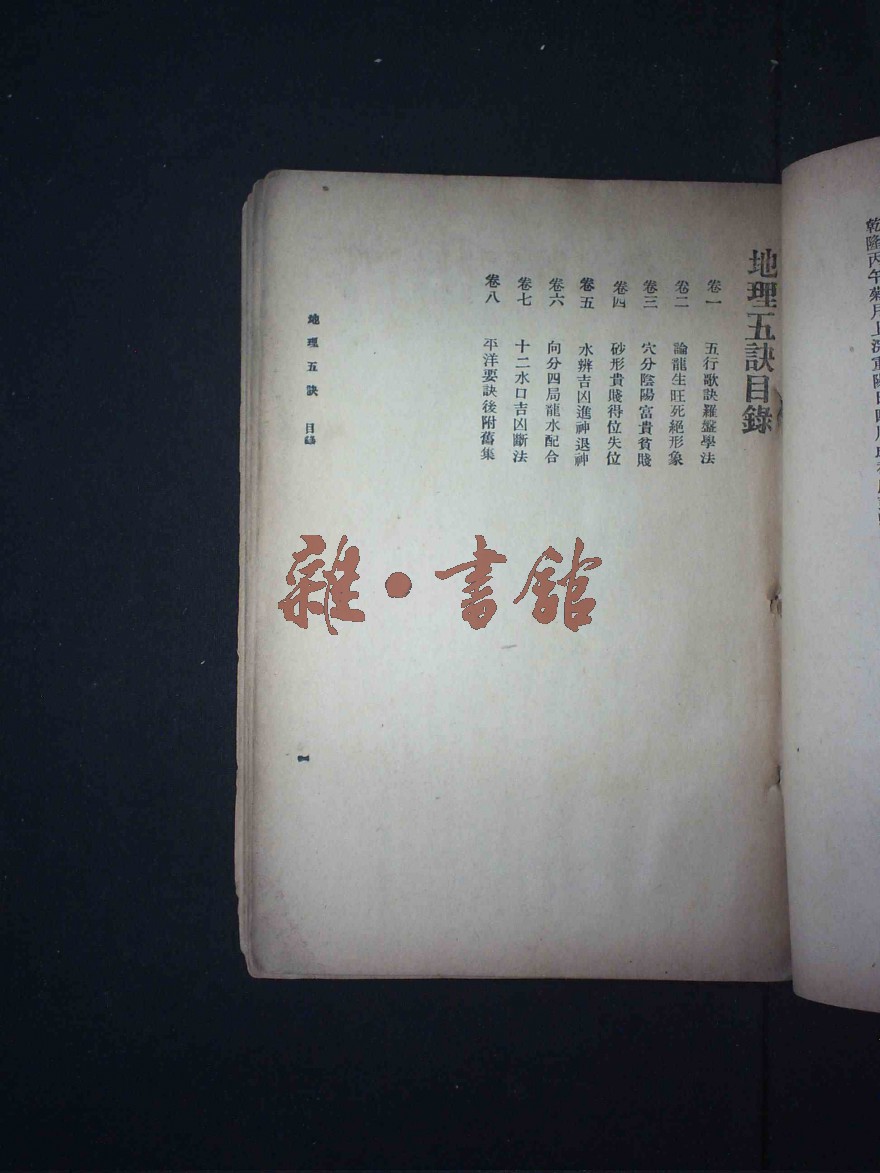 乾隆丙午菊月上浣重陽日
地理五訣目錄
卷一 五行歌訣羅盤學法
卷二 論龍生旺死絕形象
卷三 穴分陰陽富貴貧賤
卷四 砂形貴賤得位失位
卷五 水辨吉凶進神退神
卷六 向分四局龍水配合
卷七 十二水口吉凶斷法
卷八 平洋要訣後附舊集
地理五訣 目錄
一
雜·書館